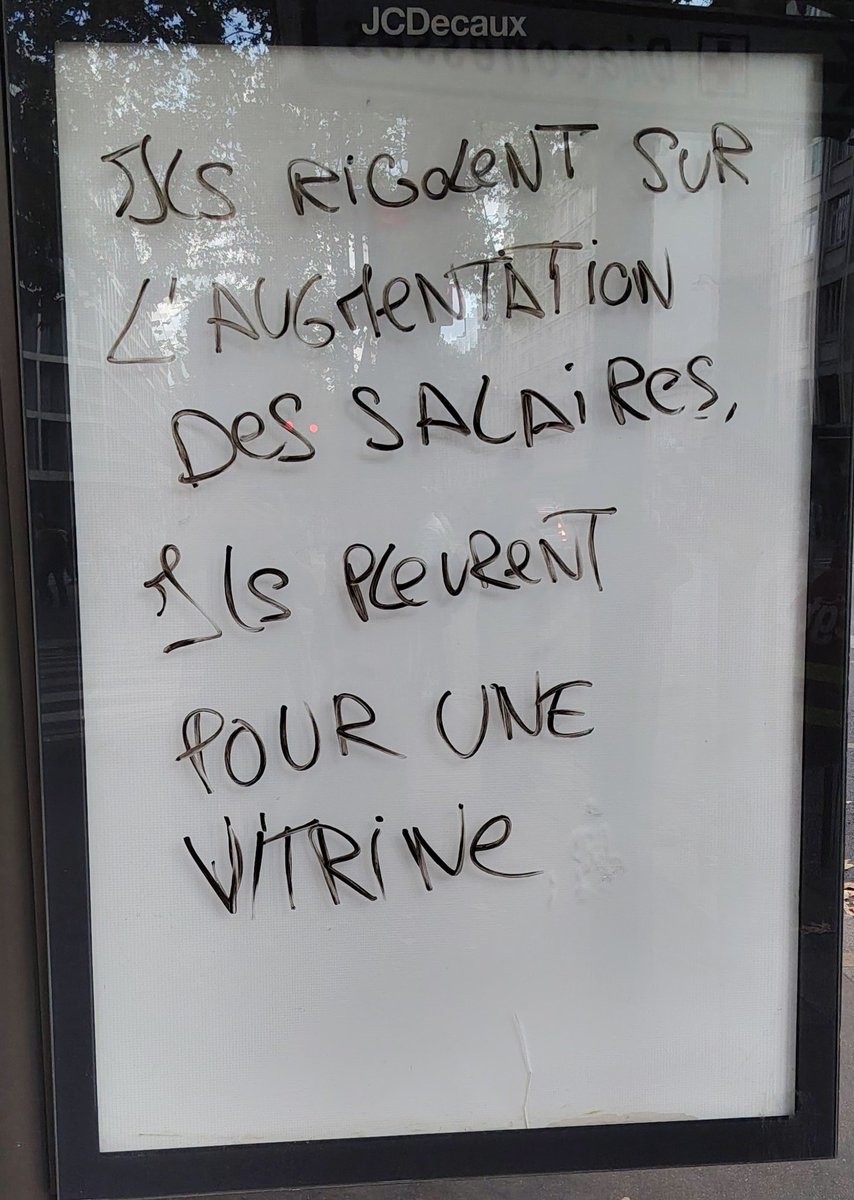 JCDecaux
ILS RIGOLENT SUR
L'AUGMENTATION
DES SALAIRES,
ILS PLEURENT
POUR UNE
VITRINE